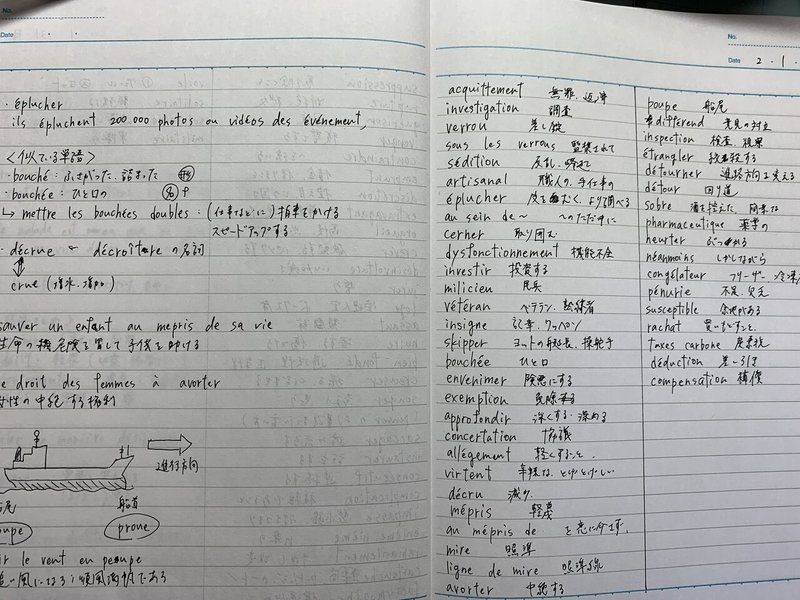 No.
Date
・éplucher
ils épluchent 200.000 photos ou vidéos des événement,
<似ている単語>
・bouché: ふさがった、詰まった 形
・bouchée: ひと口の 名f
↳ mettre les bouchées doubles: (仕事などに)拍車をかける
スピードアップする
・décrue ← décroître の名詞
crue (増水、増加)
sauver un enfant au mepris de sa vie
生命の危険を冒して子供を助ける
le droit des femmes à avorter
女性の中絶する権利
進行方向
船尾 船首
poupe proue
le vent en poupe
追い風になる、順風満帆である
No.
Date 2・1・
acquittement 無罪、返済
investigation 調査
verrou 差し錠
sous les verrous 監禁されて
sédition 反乱、蜂起
artisanal 職人の、手仕事の
éplucher 皮をむく、より調べる
au sein de~ ~のただ中に
cerner 取り囲む
dysfonctionnement 機能不全
investir 投資する
milicien 民兵
vétéran ベテラン、
insigne 記章、ワッペン
skipper ヨットの艇長、操舵手
bouchée ひと口
envenimer 険悪にする
exemption 免除
approfondir 深くする、深める
concertation 協議
allégement 軽くすること
virtent 辛辣な、とげとげしい
décru 減り
mépris 軽蔑
au mépris de を意に介さず、
mire 照準
ligne de mire 照準線
avorter 中絶する
poupe 船尾
différend 意見の対立
inspection 検査、視察
étrangler 絞め殺する
détourner 進路方向を変える
détour 回り道
sobre 酒を控えた、簡素な
pharmaceutique 薬学の
heurter ぶつかる
néanmoins しかしながら
congélateur フリーザー、冷凍
pénurie 不足、欠乏
susceptible 余地がある
rachat 買いもどすこと、
taxes carbone 炭素税
déduction 差し引き
compensation 補償